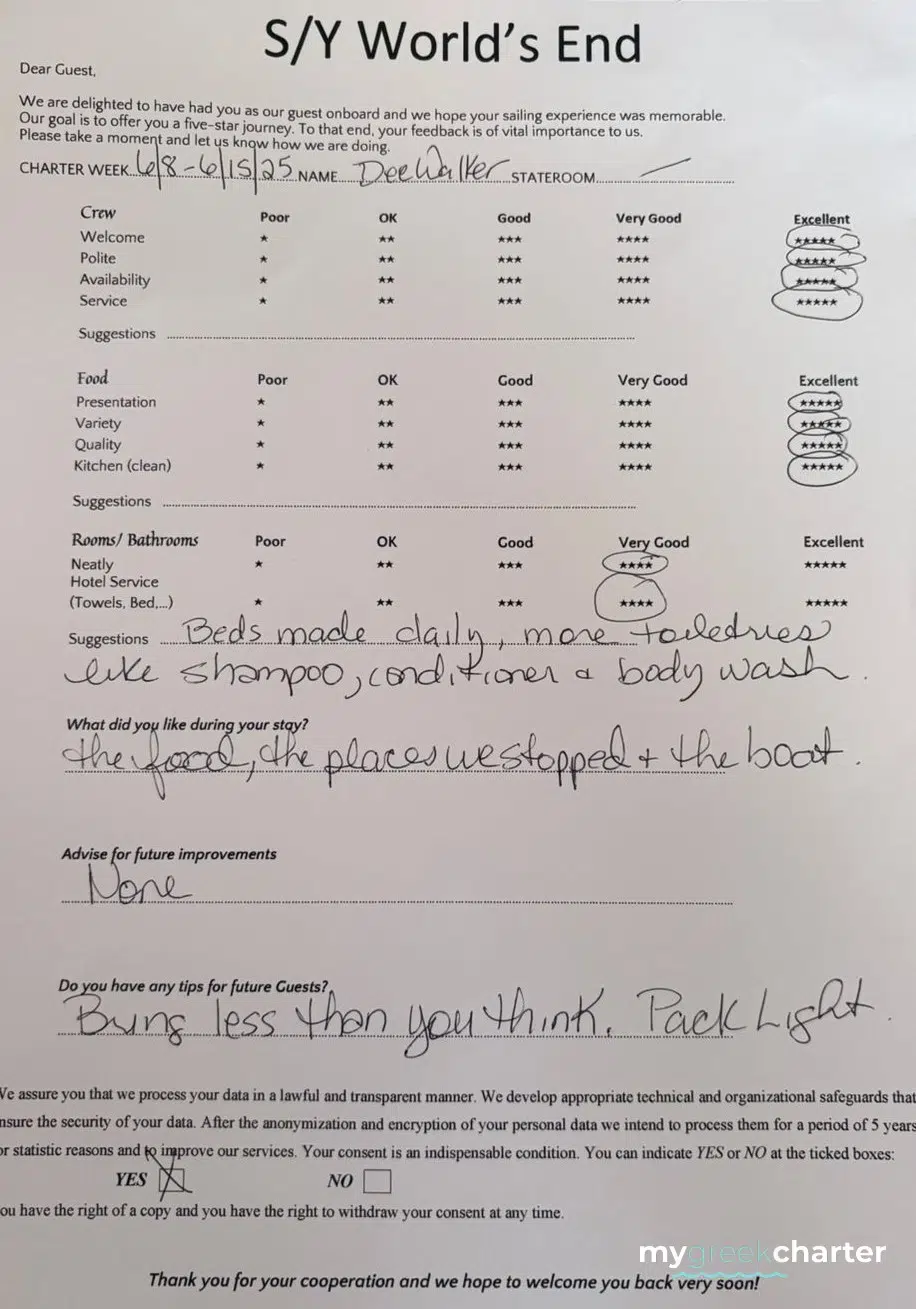 S/Y World's End
Dear Guest,
We are delighted to have had you as our guest onboard and we hope your sailing experience was memorable.
Our goal is to offer you a five-star journey. To that end, your feedback is of vital importance to us.
Please take a moment and let us know how we are doing.
CHARTER WEEK 6/8-6/15/25 NAME Dee Walker STATEROOM —
Crew Poor OK Good Very Good Excellent
Welcome ★ ★★ ★★★ ★★★★ ★★★★★
Polite ★ ★★ ★★★ ★★★★ ★★★★★
Availability ★ ★★ ★★★ ★★★★ ★★★★★
Service ★ ★★ ★★★ ★★★★ ★★★★★
Suggestions
Food Poor OK Good Very Good Excellent
Presentation ★ ★★ ★★★ ★★★★ ★★★★★
Variety ★ ★★ ★★★ ★★★★ ★★★★★
Quality ★ ★★ ★★★ ★★★★ ★★★★★
Kitchen (clean) ★ ★★ ★★★ ★★★★ ★★★★★
Suggestions
Rooms/ Bathrooms Poor OK Good Very Good Excellent
Neatly ★ ★★ ★★★ ★★★★ ★★★★★
Hotel Service
(Towels, Bed,...) ★ ★★ ★★★ ★★★★ ★★★★★
Suggestions Beds made daily, more toiledries
like shampoo, conditioner & body wash.
What did you like during your stay?
the food, the places we stopped + the boat.
Advise for future improvements
None
Do you have any tips for future Guests?
Bring less than you think. Pack Light.
We assure you that we process your data in a lawful and transparent manner. We develop appropriate technical and organizational safeguards that
nsure the security of your data. After the anonymization and encryption of your personal data we intend to process them for a period of 5 years
or statistic reasons and to improve our services. Your consent is an indispensable condition. You can indicate YES or NO at the ticked boxes:
YES NO
ou have the right of a copy and you have the right to withdraw your consent at any time.
mygreekcharter
Thank you for your cooperation and we hope to welcome you back very soon!